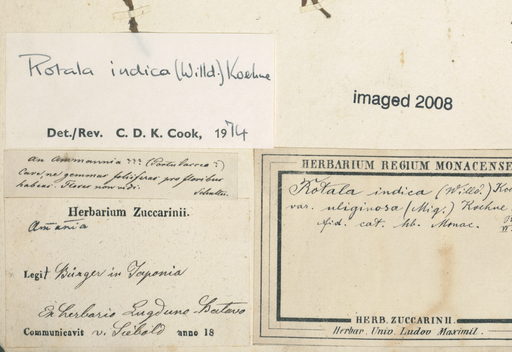 Rotala indica (Willd.) Koehne
Det./Rev. C. D. K. Cook, 1974
imaged 2008
an Ammannia ??? (Portulaccea?)
Cave, ne gemmas foliiferas pro floribus
habeas. Flores non vidi.
Schultes
Herbarium Zuccarinii.
Amania
Legit Bürger in Japonia
Ex herbario Lugduno Batavo
Communicavit v. Siebold anno 18
HERBARIUM REGIUM MONACENSE
Rotala indica (Willd.) Koe
var. uliginosa (Miq.) Koehne
fid. cat. hb. Monac.
HERB. ZUCCARINII.
Herbar. Univ. Ludov. Maximil.